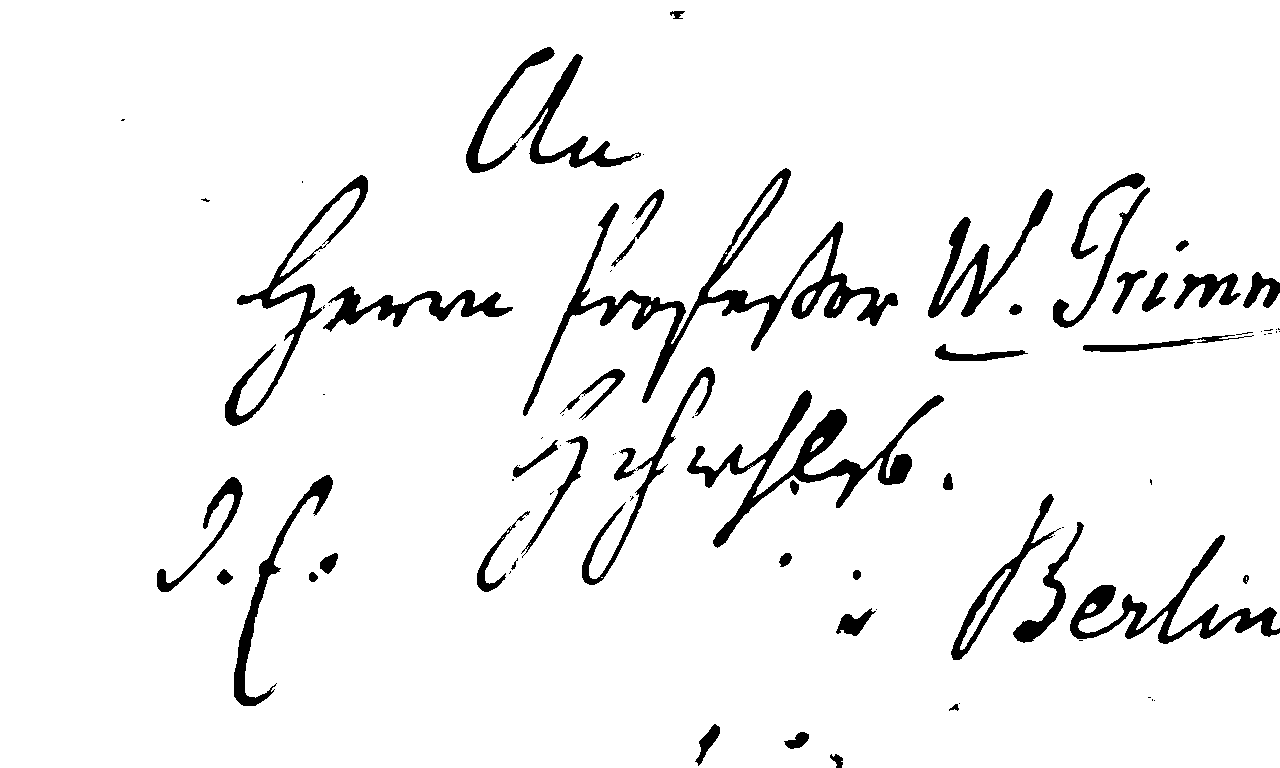 An
Herrn Profeßor W. Grimm
Hochwohlgeb.
d. E.
in Berlin